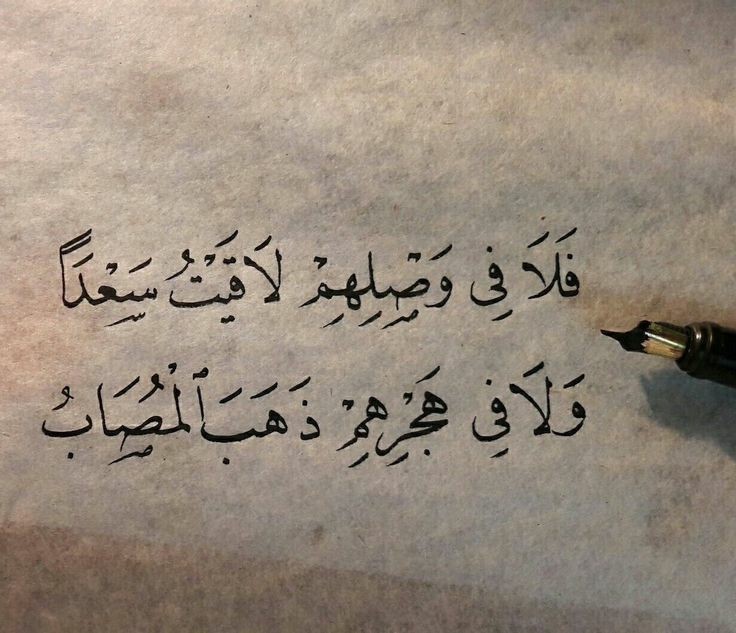 فَلَا فِي وَصْلِهِمْ لَاقَيْتُ سَعْدَاً
وَلَا فِي هَجْرِهِمْ ذَهَبَ ٱلْمُصَابُ